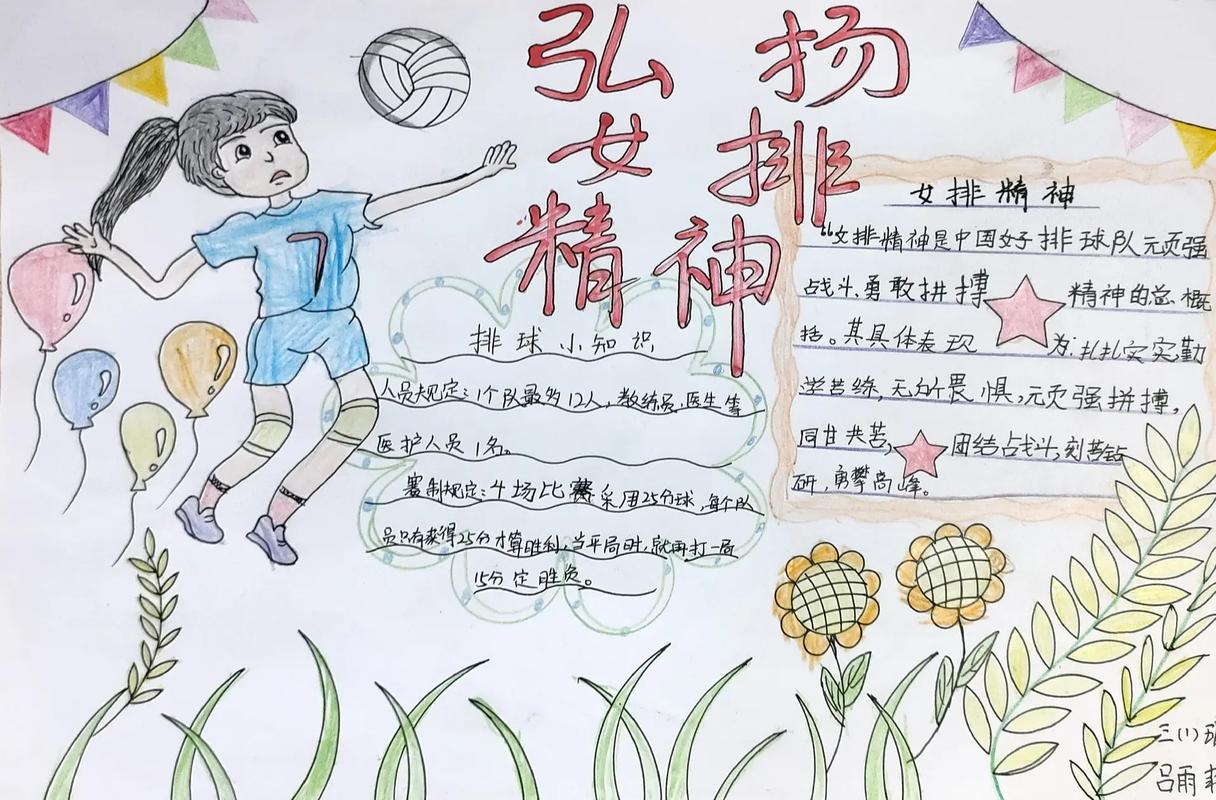 弘扬
女排
精神
7
排球小知识
人员规定:1个队最多12人,教练员、医生等
医护人员1名。
赛制规定:4场比赛采用25分球,每个队
员只有获得25分才算胜利,当平局时,就再打一局
15分定胜负。
女排精神
“女排精神是中国女子排球队顽强
战斗、勇敢拼搏精神的总概
括。其具体表现为:扎扎实实勤
学苦练,无所畏惧,顽强拼搏,
同甘共苦,团结占战斗,刻苦钻
研,勇攀高峰。
三(1)
吕雨